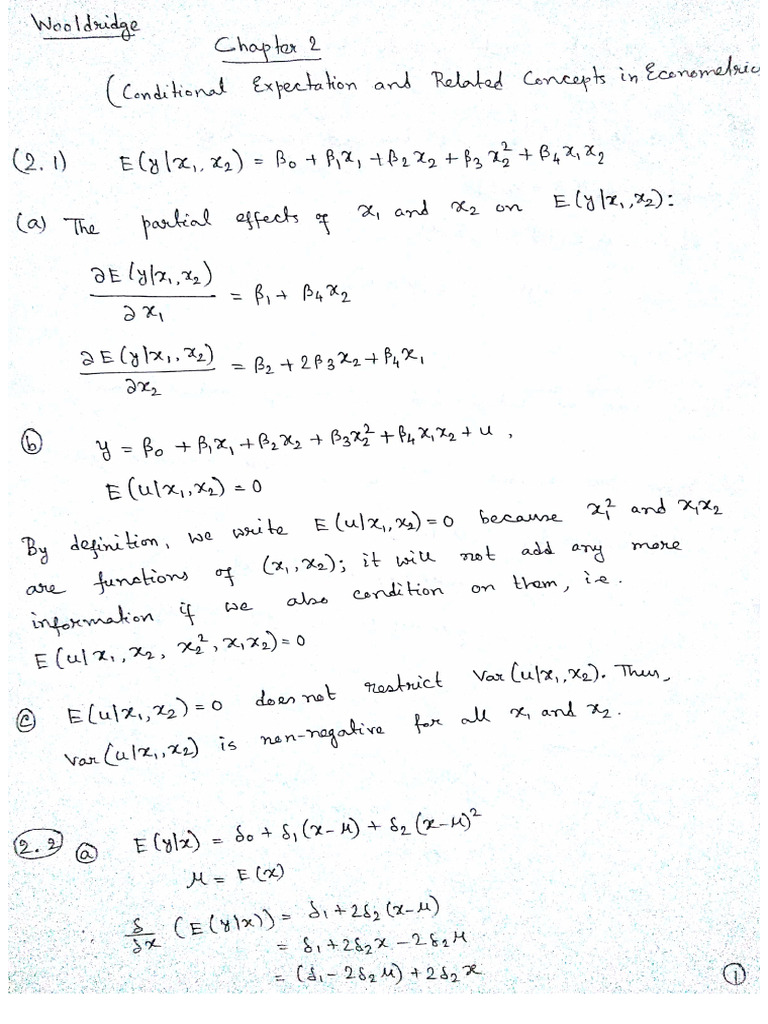 Wooldridge
Chapter 2
(Conditional Expectation and Related Concepts in Econometrics
(2.1) E(y|x₁, x₂) = β₀ + β₁x₁ + β₂x₂ + β₃x₂² + β₄x₁x₂
(a) The partial effects of x₁ and x₂ on E(y|x₁, x₂):
∂E(y|x₁, x₂)/∂x₁ = β₁ + β₄x₂
∂E(y|x₁, x₂)/∂x₂ = β₂ + 2β₃x₂ + β₄x₁
(b) y = β₀ + β₁x₁ + β₂x₂ + β₃x₂² + β₄x₁x₂ + u,
E(u|x₁, x₂) = 0
By definition, we write E(u|x₁, x₂) = 0 because x₁² and x₁x₂
are functions of (x₁, x₂); it will not add any more
information if we also condition on them, i.e.
E(u|x₁, x₂, x₂², x₁x₂) = 0
(c) E(u|x₁, x₂) = 0 does not restrict Var(u|x₁, x₂). Thus,
Var(u|x₁, x₂) is non-negative for all x₁ and x₂.
2.2 (a) E(y|x) = δ₀ + δ₁(x-μ) + δ₂(x-μ)²
μ = E(x)
δ/δx (E(y|x)) = δ₁ + 2δ₂(x-μ)
= δ₁ + 2δ₂x - 2δ₂μ
= (δ₁ - 2δ₂μ) + 2δ₂x
1